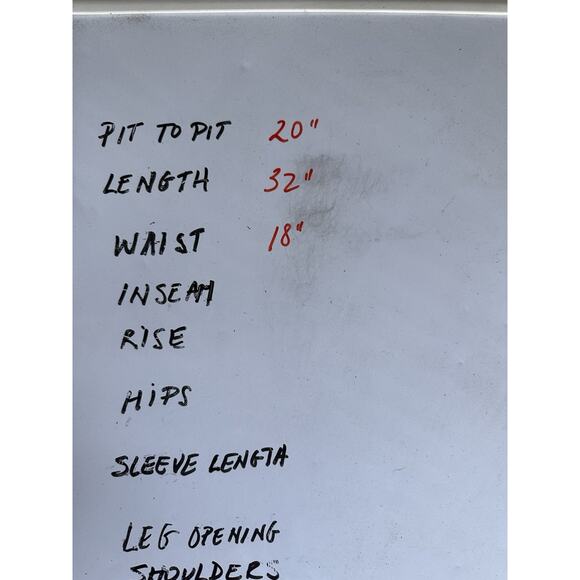 PIT TO PIT 20"
LENGTH 32"
WAIST 18"
INSEAM
RISE
HiPS
SLEEVE LENGTH
LEG OPENING
SHOULDERS